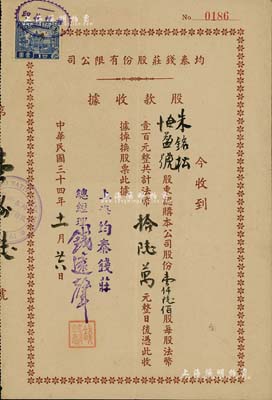 No 0186
均泰錢莊股份有限公司
股款收據
今收到
朱銘松
怡益號
股東認購本公司股份壹仟陸佰股每股法幣
壹百元整共計法幣拾陸萬元整日後憑此收
據掉換股票此據
上海均泰錢莊
總經理
中華民國三十四年十一月廿六日